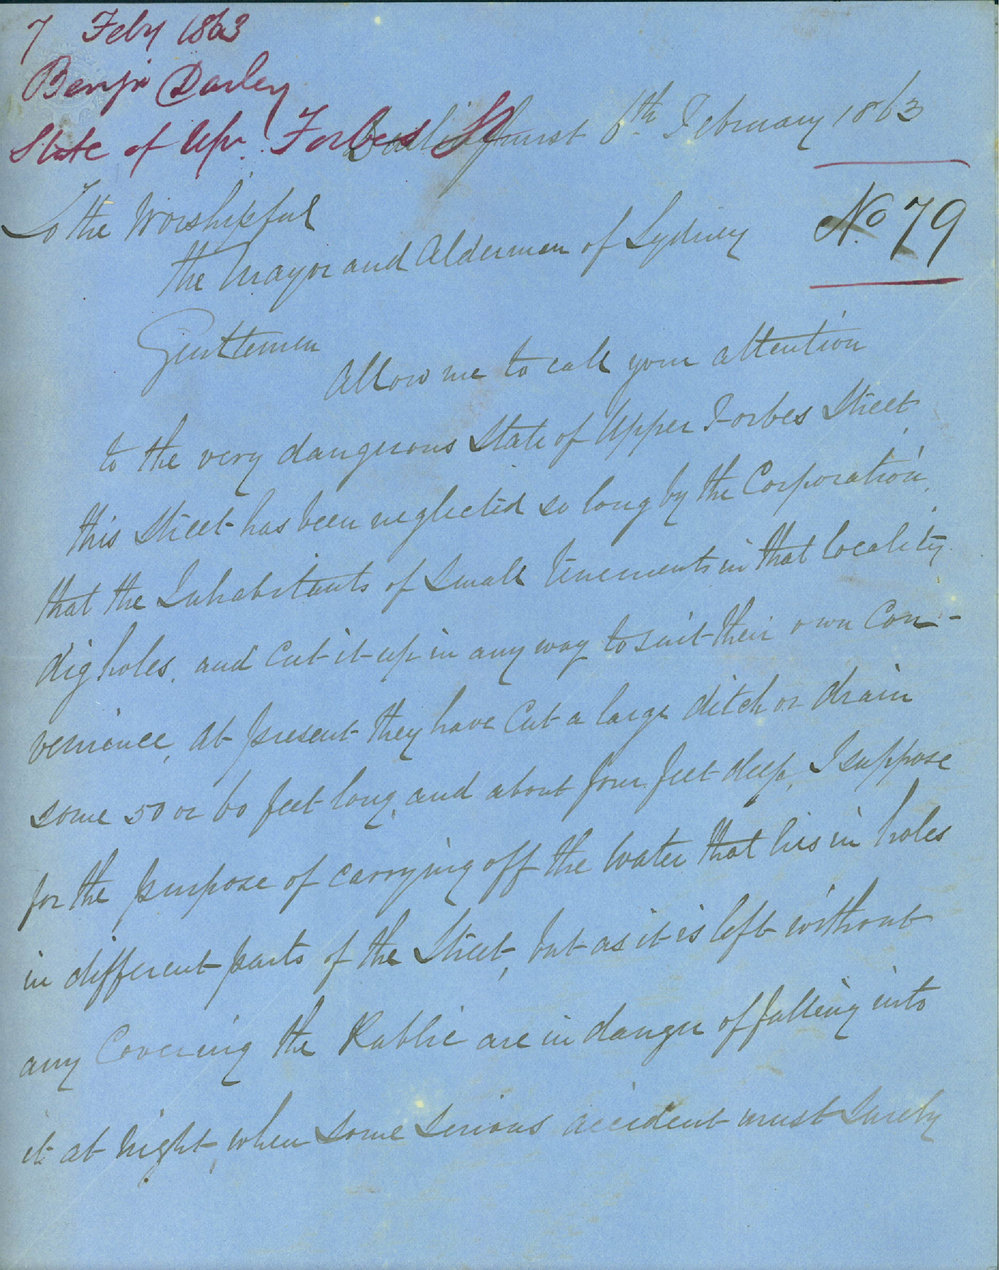 7 Feby 1863
Benjn Darley
State of Upr. Forbes St
Darlinghurst 6th February 1863
No 79
To the Worshipful
the Mayor and Aldermen of Sydney
Gentlemen
Allow me to call your attention
to the very dangerous State of Upper Forbes Street,
this Street has been neglected so long by the Corporation,
that the Inhabitants of Small Tenements in that locality
dig holes, and Cut it up in any way to suit their own Con-
venience, At present they have Cut a large ditch or drain
some 50 or 60 feet long, and about four feet deep, I suppose
for the purpose of carrying off the Water that lies in holes
in different parts of the Street, but as it is left without
any Covering the Public are in danger of falling into
it at night, when some serious accident must surely